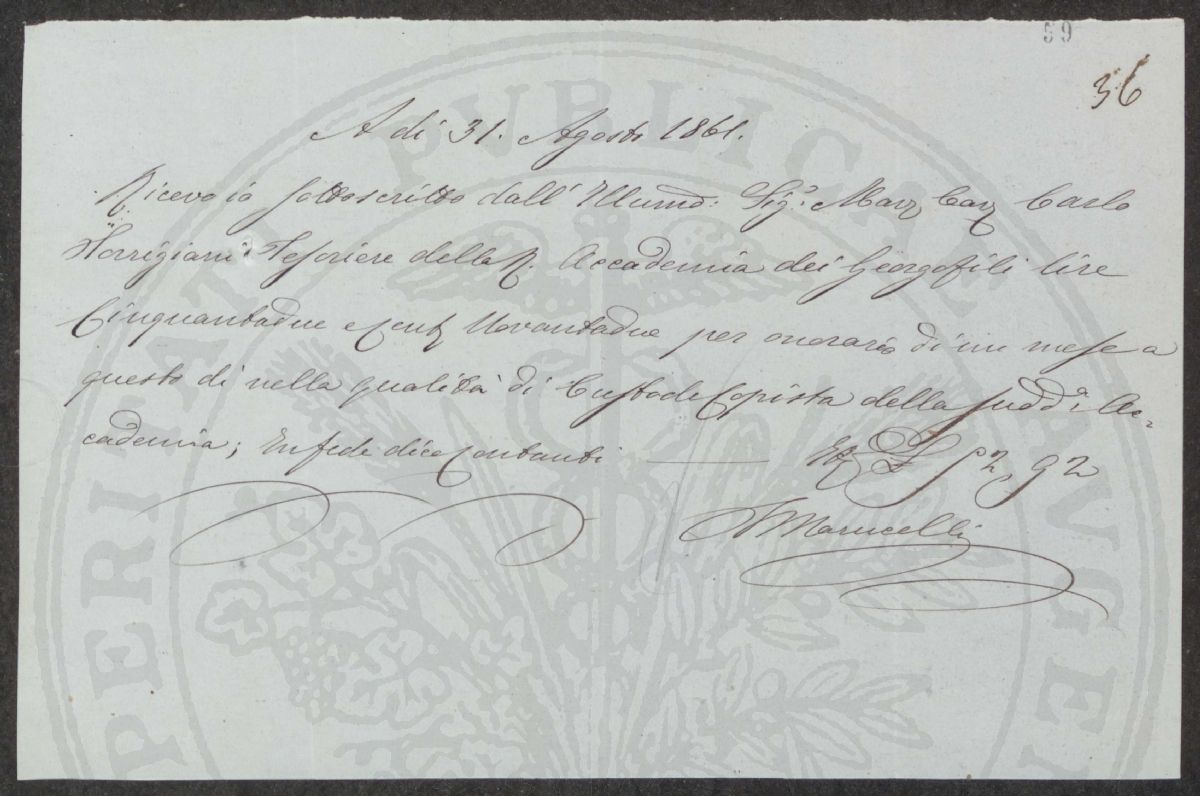 59
36
A dì 31. Agosto 1861.
Ricevo io sottoscritto dall' Illumo: Sig.r Marz Cav Carlo
Torrigiani Tesoriere della R. Accademia dei Georgofili lire
Cinquantadue e Cent Novantadue per onorario di un mese a
questo dì nella qualità di Custode Copista della sudd.a Ac=
cademia; In fede dico Contanti — £ 52, 92
Marucelli
PERITATI PUBLICAE AUGE